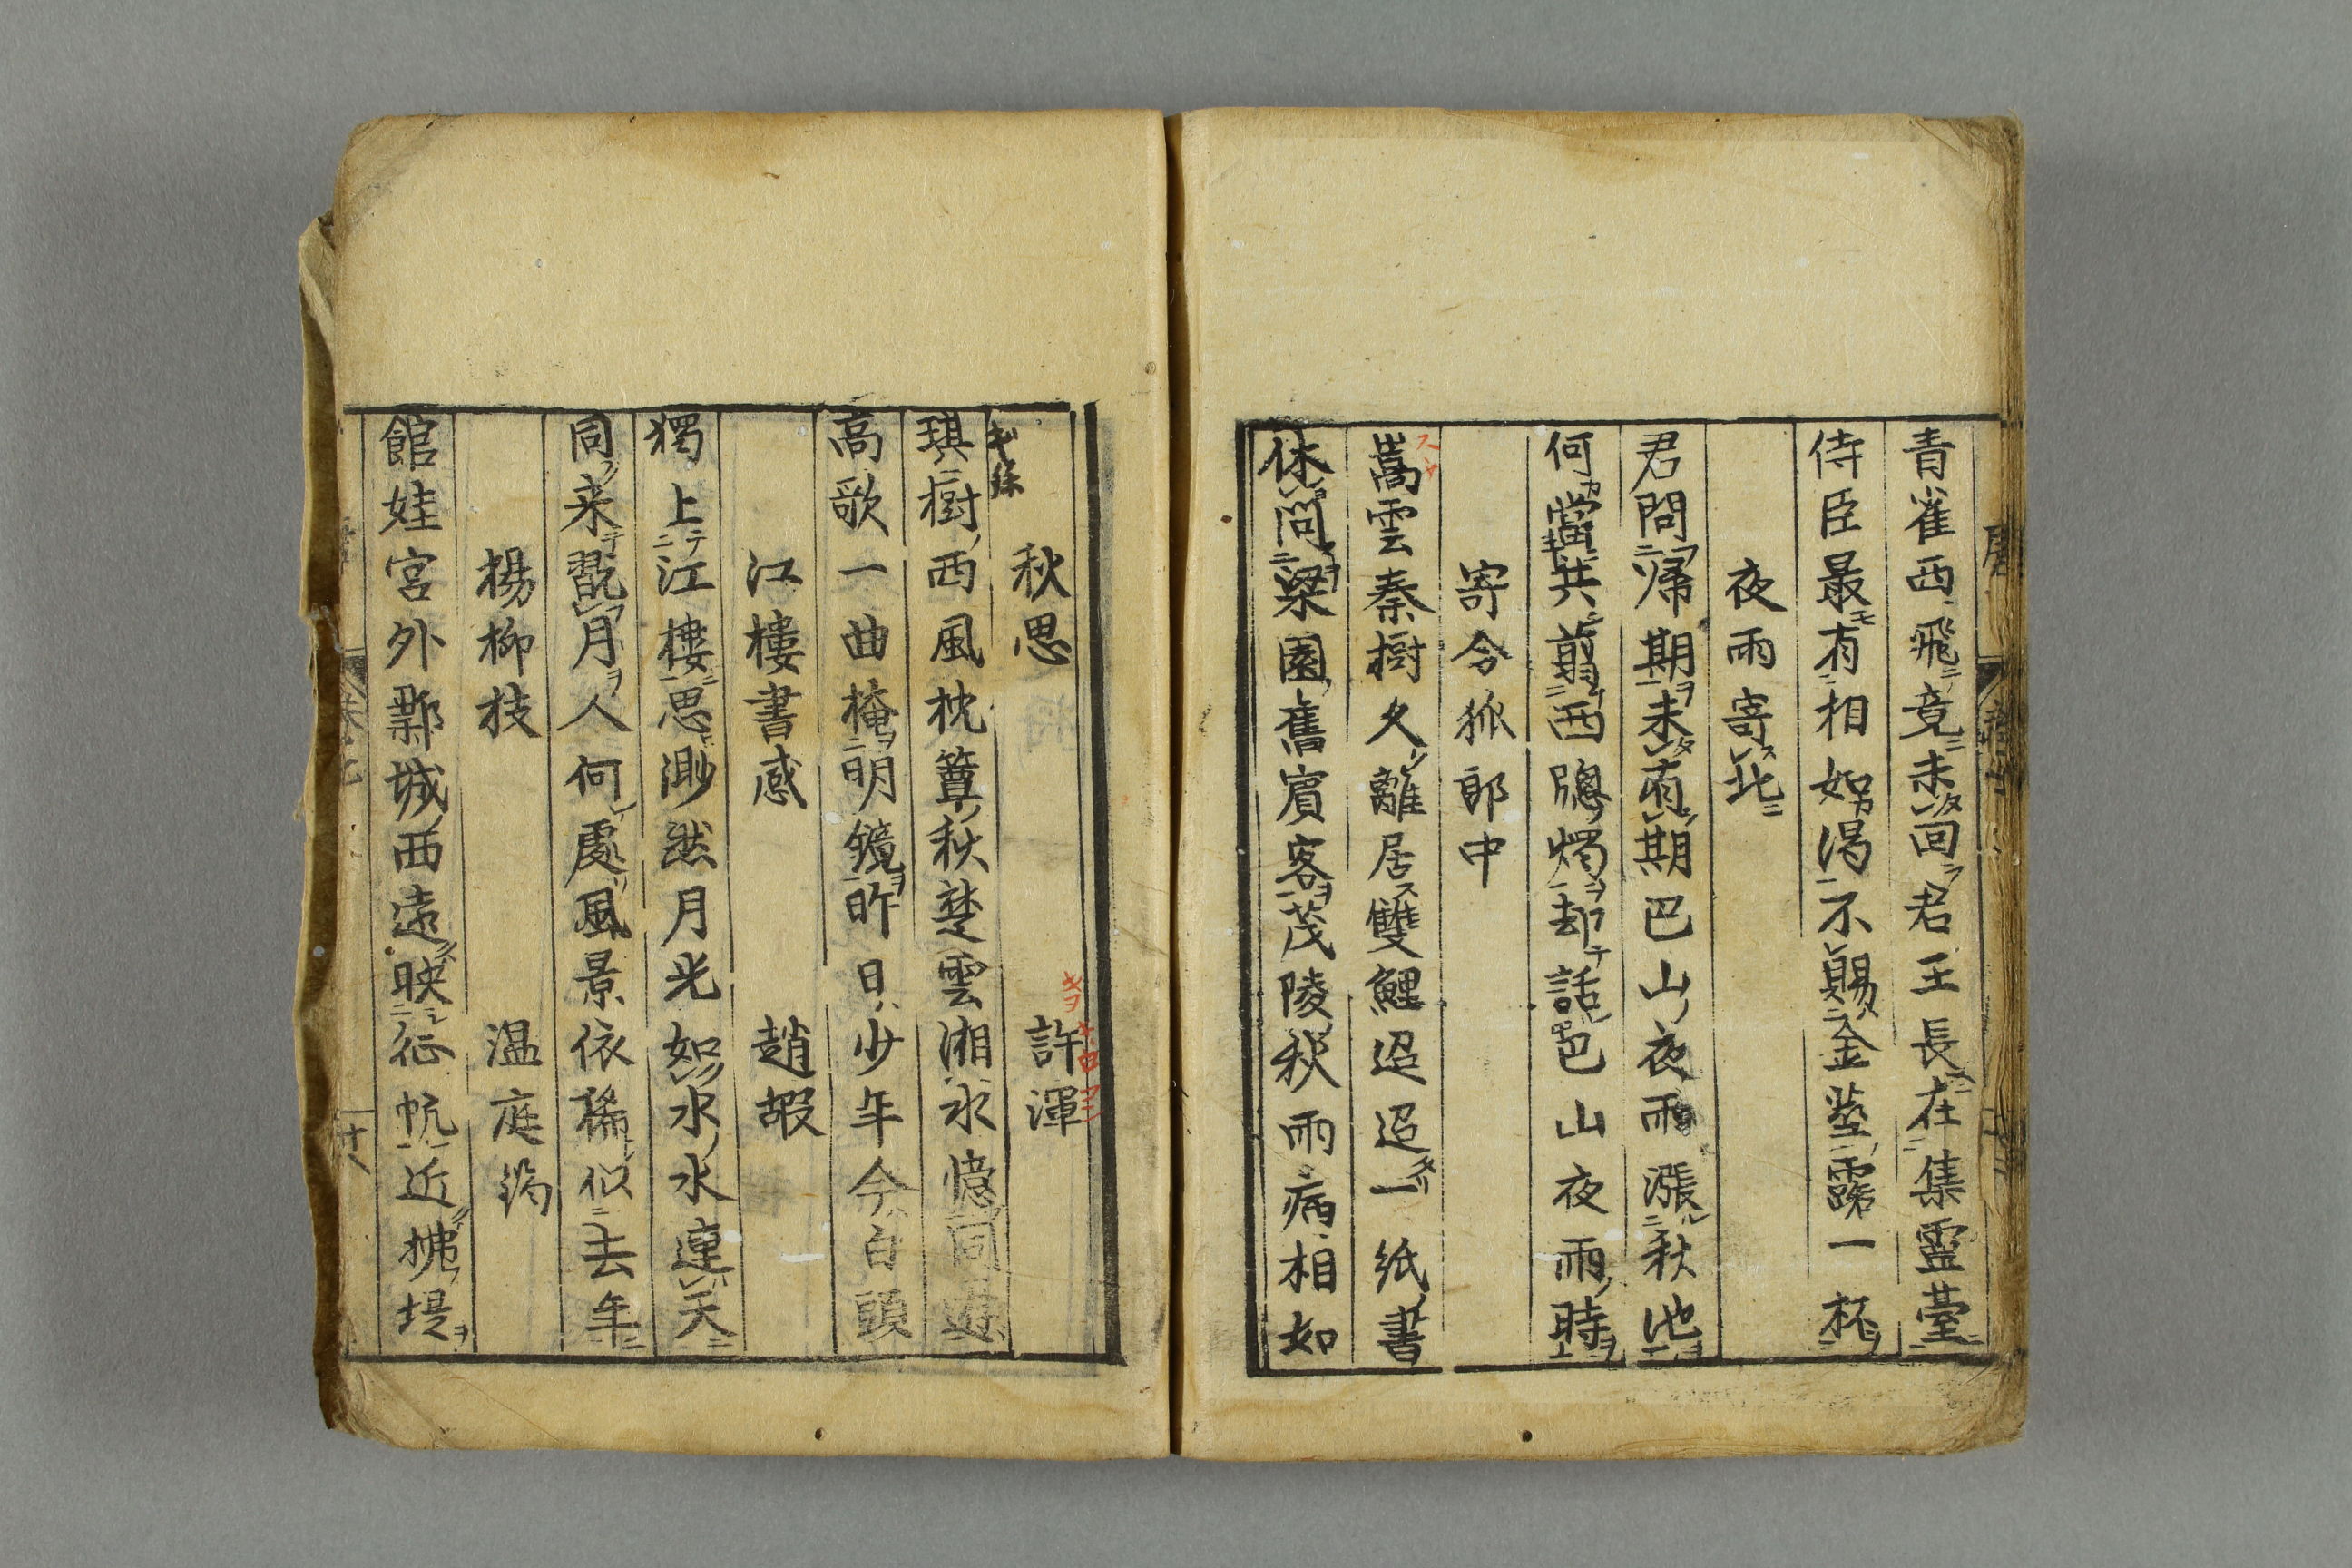 青雀西飛竟未回君王長在集靈臺
侍臣最有相如渇不賜金莖露一杯
夜雨寄北
君問帰期未有期巴山夜雨漲秋池
何當共翦西窓燭却話巴山夜雨時
寄令狐郎中
嵩雲秦樹久離居雙鯉迢迢一紙書
休問梁園舊賓客茂陵秋雨病相如
秋思 許渾
琪樹西風枕簟秋楚雲湘水憶同遊
高歌一曲掩明鏡昨日少年今白頭
江樓書感 趙嘏
獨上江樓思渺然月光如水水連天
同来翫月人何處風景依稀似去年
楊柳枝 温庭筠
館娃宮外鄴城西遠映征帆近拂堤
十八